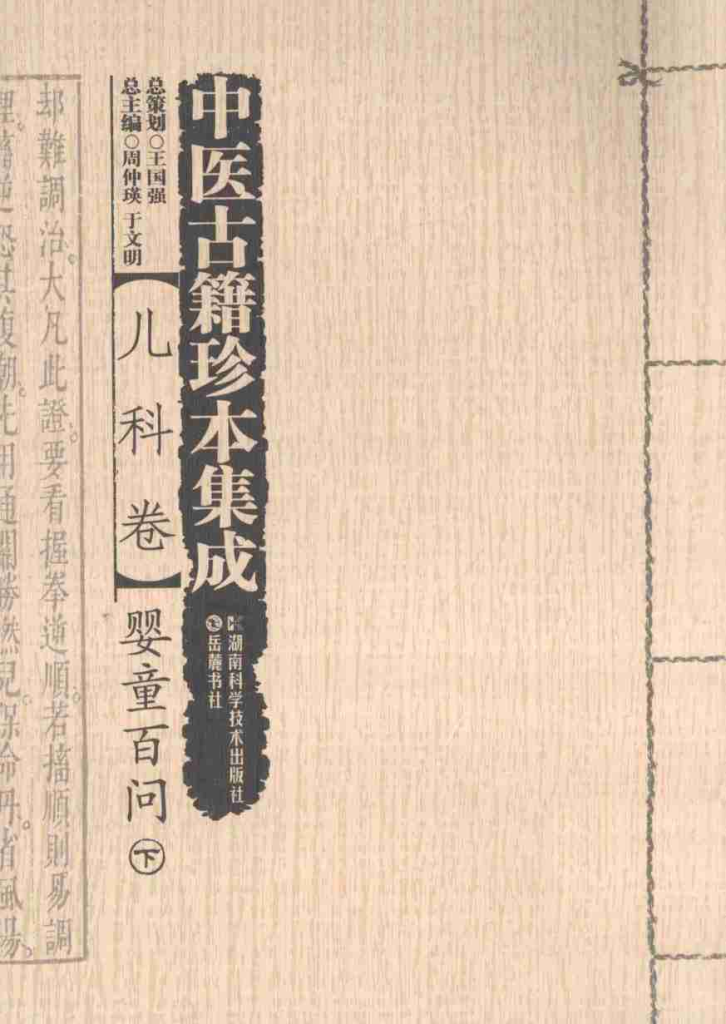 中医古籍珍本集成
湖南科学技术出版社
岳麓书社
总策划○王国强
总主编○周仲瑛 于文明
【儿科卷】
婴童百问 下
却難調治。大凡此證。要看握拳道順。若搐順則易調
恐其復潮。先用通關勝
兒保命丹。省風湯。